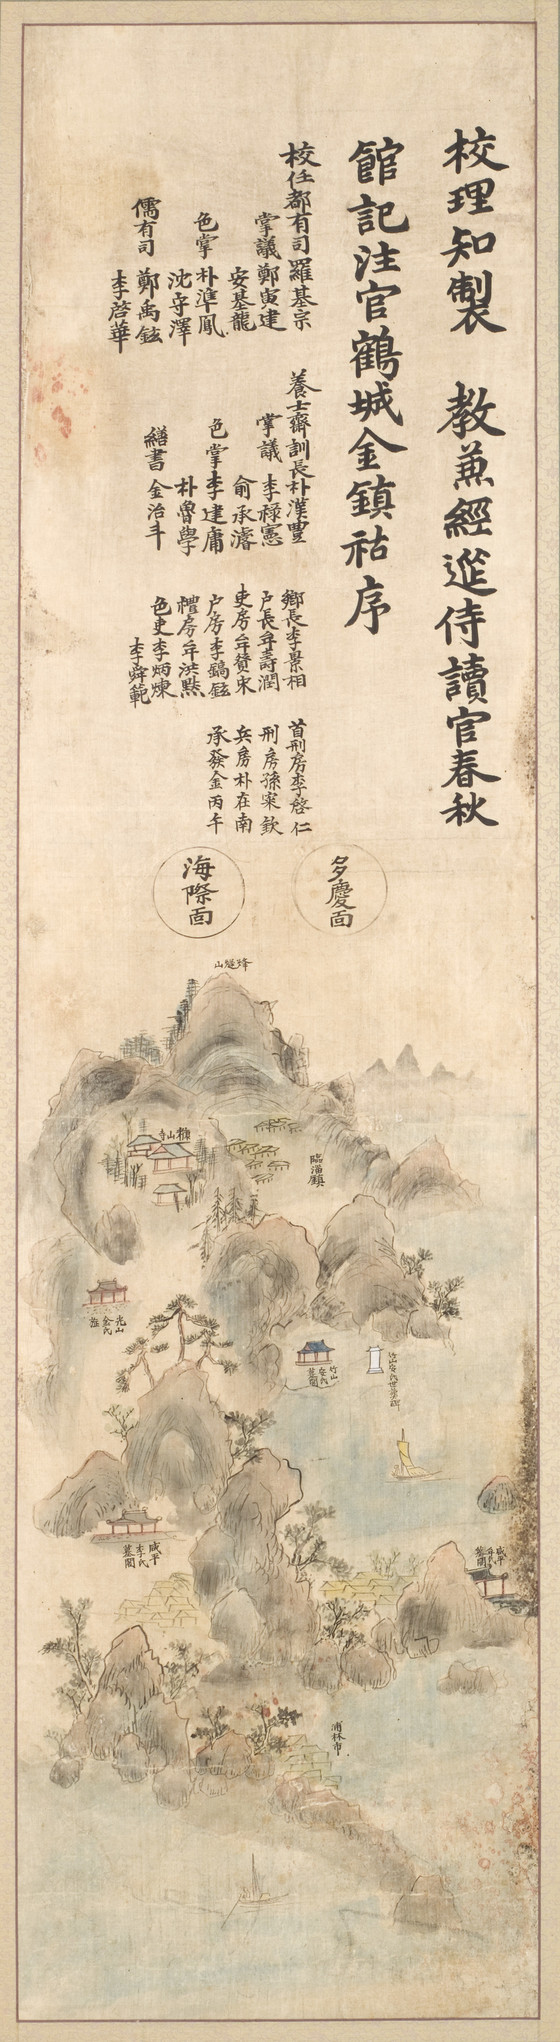 校理知製 教兼經筵侍讀官春秋
館記注官鶴城金鎮祜序
校任都有司羅基宗
掌議 鄭寅建
安基龍
色掌 朴準鳳
沈守澤
儒有司 鄭禹鉉
李啓華
養士齋訓長朴漢豊
掌議 李祿憲
俞承濬
色掌 李建庸
朴魯學
繕書 金治斗
鄉長李景相
户長牟壽潤
吏房牟贊
户房李鎬鉉
禮房牟洪
色吏李炳煉
李舜範
首刑房李啓仁
刑房孫宷欽
兵房朴在南
承發金丙午
多慶面
海際面
烽燧山
山寺
臨淄鎮
光山金氏
竹山安氏墓閣
竹山安氏世葬碑
咸平李氏墓閣
咸平牟氏墓閣
浦林市